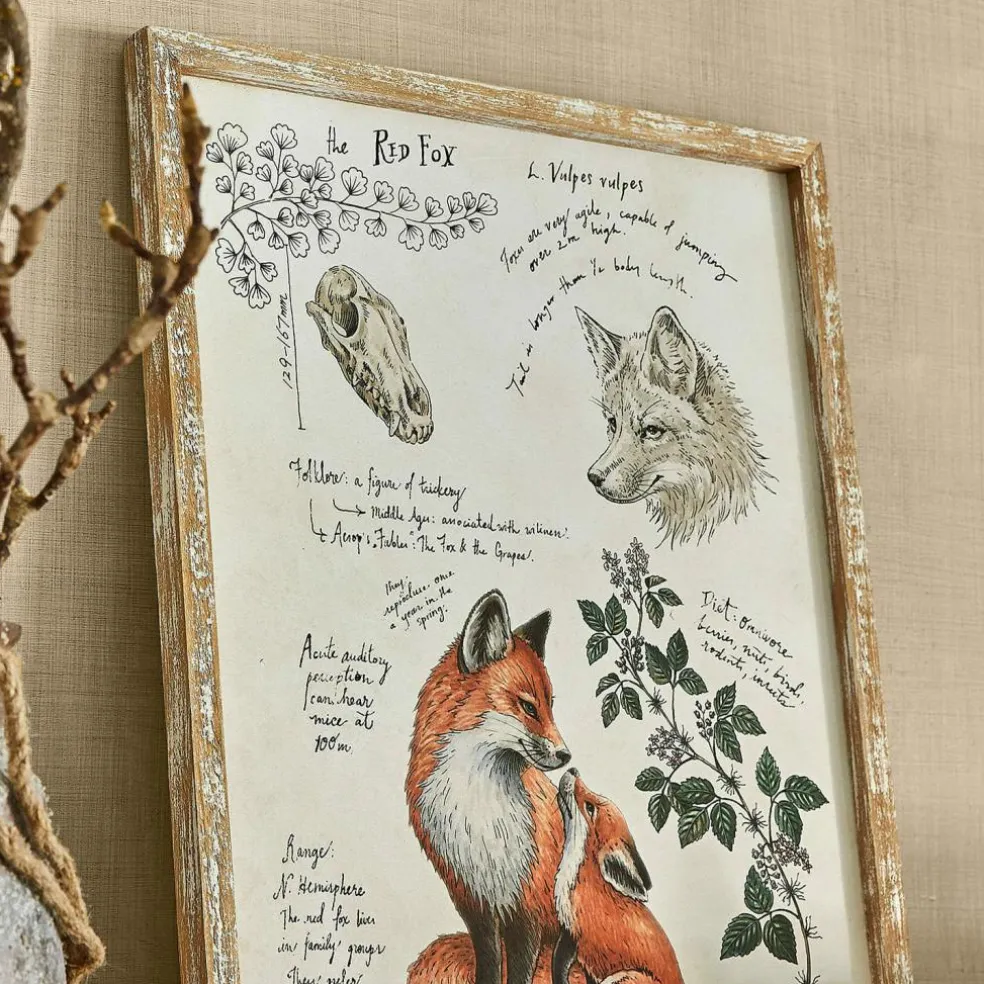 the RED FOX
L. Vulpes vulpes
Foxes are very agile, capable of jumping
over 2m high.
Tail is longer than ½ body length.
129-167mm
Folklore: a figure of trickery
Middle Ages: associated with wiliness.
Aesop's "Fables": The Fox & the Grapes.
They
reproduce once
a year in the
spring.
Acute auditory
perception
can hear
mice at
100m.
Diet: Omnivore
berries, nuts, birds,
rodents, insects
Range:
N. Hemisphere
The red fox lives
in family groups
They